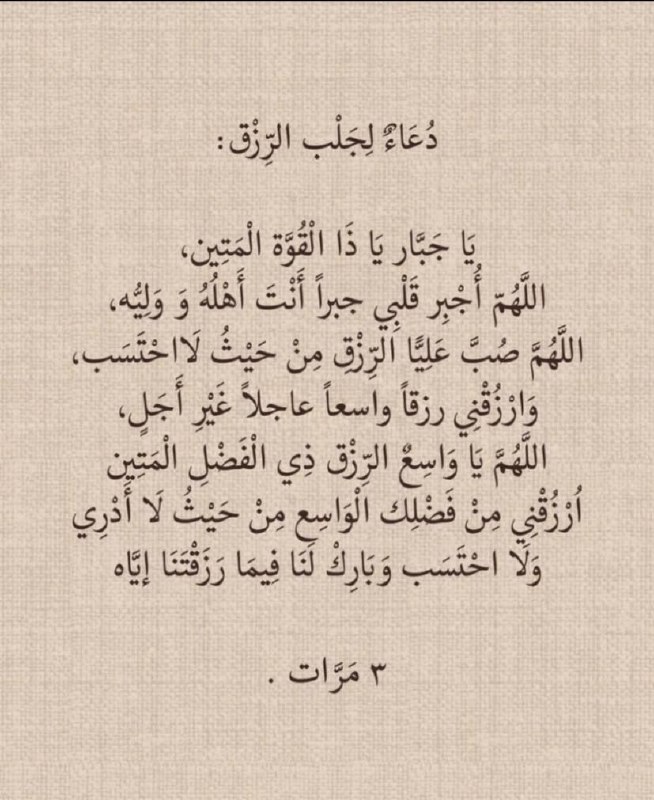 دُعَاءٌ لِجَلْب الرِّزْق:
يَا جَبَّار يَا ذَا الْقُوَّة الْمَتِين،
اللَّهُمّ أُجْبِر قَلْبِي جبراً أَنْتَ أَهْلُهُ وَ وَلِيُّه،
اللَّهُمَّ صُبَّ عَلِيًّا الرِّزْقِ مِنْ حَيْثُ لَااحْتَسَب،
وَارْزُقْنِي رزقاً واسعاً عاجلاً غَيْرِ أَجَلٍ،
اللَّهُمَّ يَا وَاسِعٌ الرِّزْق ذِي الْفَضْلِ الْمَتِين
اُرْزُقْنِي مِنْ فَضْلِك الْوَاسِع مِنْ حَيْثُ لَا أَدْرِي
وَلَا احْتَسَب وَبَارِكْ لَنَا فِيمَا رَزَقْتَنَا إيَّاه
٣ مَرَّات .